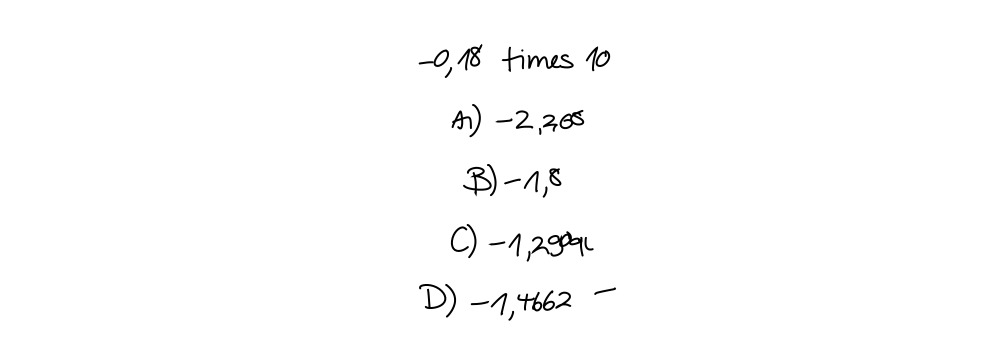 -0,18 times 10
A) -2,268
B) -1,8
C) -1,2994
D) -1,4662 -